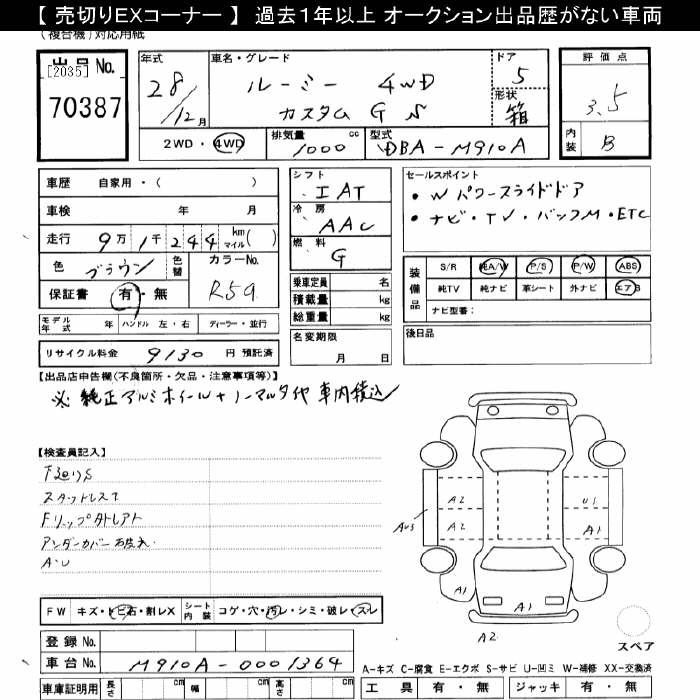 【 売切りEXコーナー 】 過去1年以上 オークション出品歴がない車両
(複合機)対応用紙
出品 No.
[2035]
70387
年式
28/12月
車名・グレード
ルーミー 4WD
カスタム G S
ドア
5
形状
箱
評価点
3.5
内装
B
2WD・4WD
排気量
1000 cc
型式
DBA-M910A
車歴 自家用・( )
車検 年 月
走行 9万1千244 km マイル( )
色 ブラウン 色替 カラーNo. R59
保証書 有・無
モデル年式 年 ハンドル 左・右 ディーラー・並行
リサイクル料金 9130 円 預託済
シフト
IAT
冷房
AAC
燃料
G
乗車定員 名
積載量 kg
総重量 kg
名変期限
月 日
セールスポイント
・Wパワースライドドア
・ナビ・TV・バックM・ETC
装備品
S/R 純A/W P/S P/W ABS
純TV 純ナビ 革シート 外ナビ エアB
ナビ型番:
後日品
【出品店申告欄(不良箇所・欠品・注意事項等)】
純正アルミホイール+ノーマルタイヤ 車内積込
【検査員記入】
下廻りS
スタットレスT
Fリップ
アンダーカバー破れ
A・U
A2
A2
U1
A1
A1
A1
A1
A2
FW キズ・トビ石・割レX シート内装 コゲ・穴・汚レ・シミ・破レ・スレ
スペア
登録 No.
車台 No. M910A-0001364
A-キズ C-腐食 E-エクボ S-サビ U-凹ミ W-補修 XX-交換済
車庫証明用 長さ cm 幅 cm 高さ cm
工具 有・無 ジャッキ 有・無